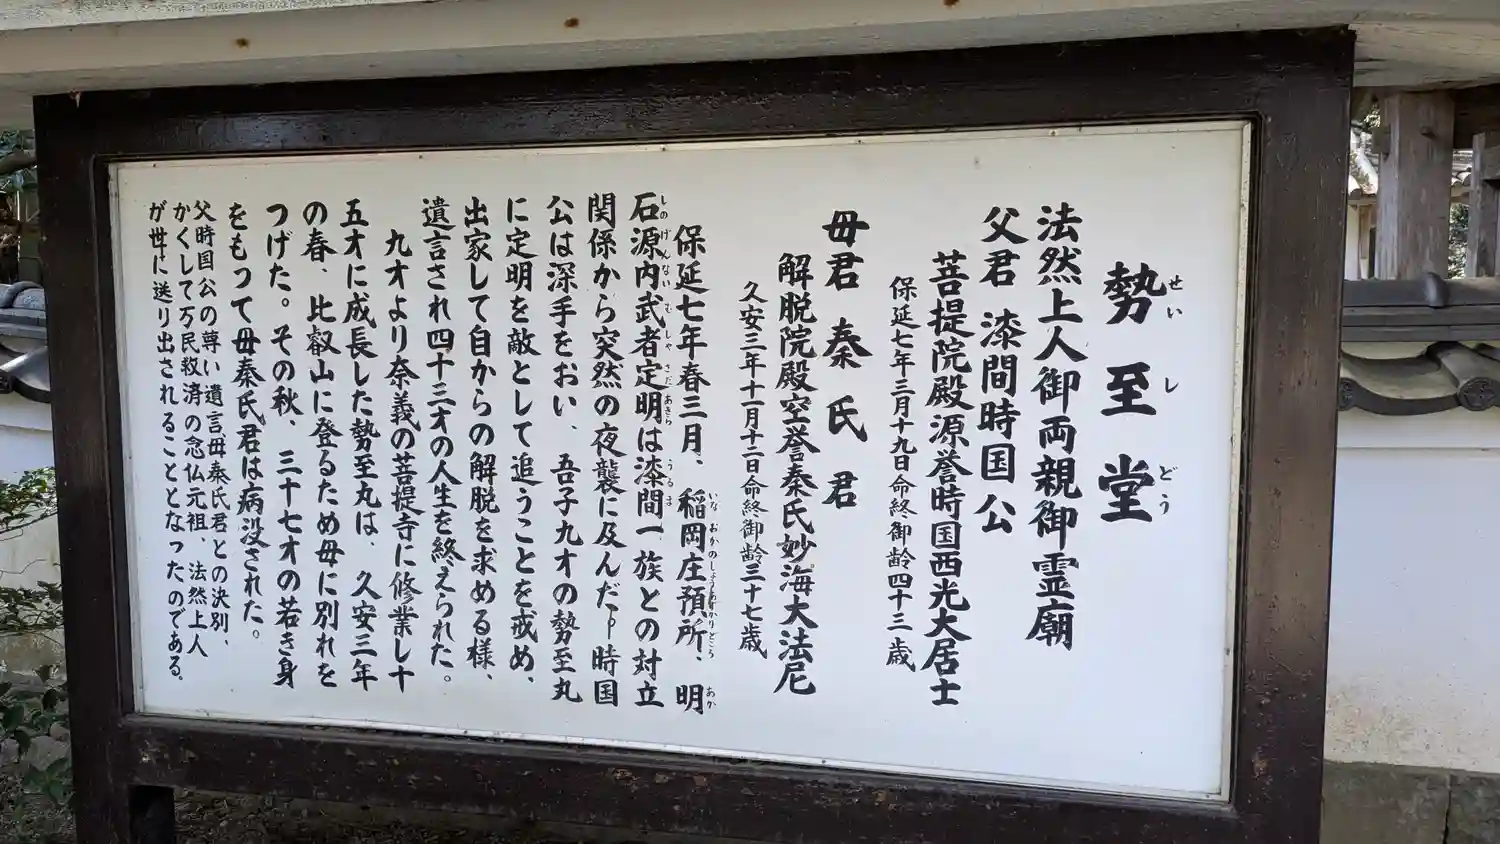 勢至堂
法然上人御両親御霊廟
父君 漆間時国公
菩提院殿源誉時国西光大居士
保延七年三月十九日命終御齢四十三歳
母君 秦氏君
解脱院殿空誉秦氏妙海大法尼
久安三年十一月十二日命終御齢三十七歳
保延七年春三月、稲岡庄預所、明
石源内武者定明は漆間一族との対立
関係から突然の夜襲に及んだ。時国
公は深手をおい、吾子九才の勢至丸
に定明を敵として追うことを戒め、
出家して自からの解脱を求める様、
遺言され四十三才の人生を終えられた。
九才より奈義の菩提寺に修業し十
五才に成長した勢至丸は、久安三年
の春、比叡山に登るため母に別れを
つげた。その秋、三十七才の若き身
をもつて母秦氏君は病没された。
父時国公の尊い遺言母秦氏君との決別、
かくして万民救済の念仏元祖、法然上人
が世に送り出されることとなったのである。